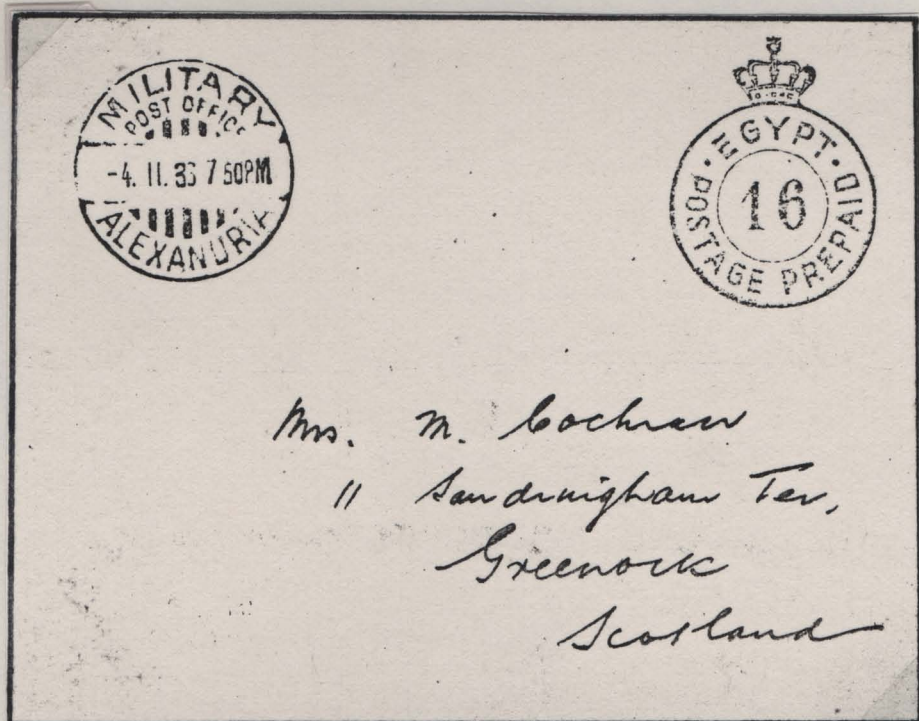 MILITARY
POST OFFICE
-4. II. 36 7 50PM
ALEXANDRIA
EGYPT
16
POSTAGE PREPAID
Mrs. M. Cochran
11 Sandringham Ter,
Greenock
Scotland